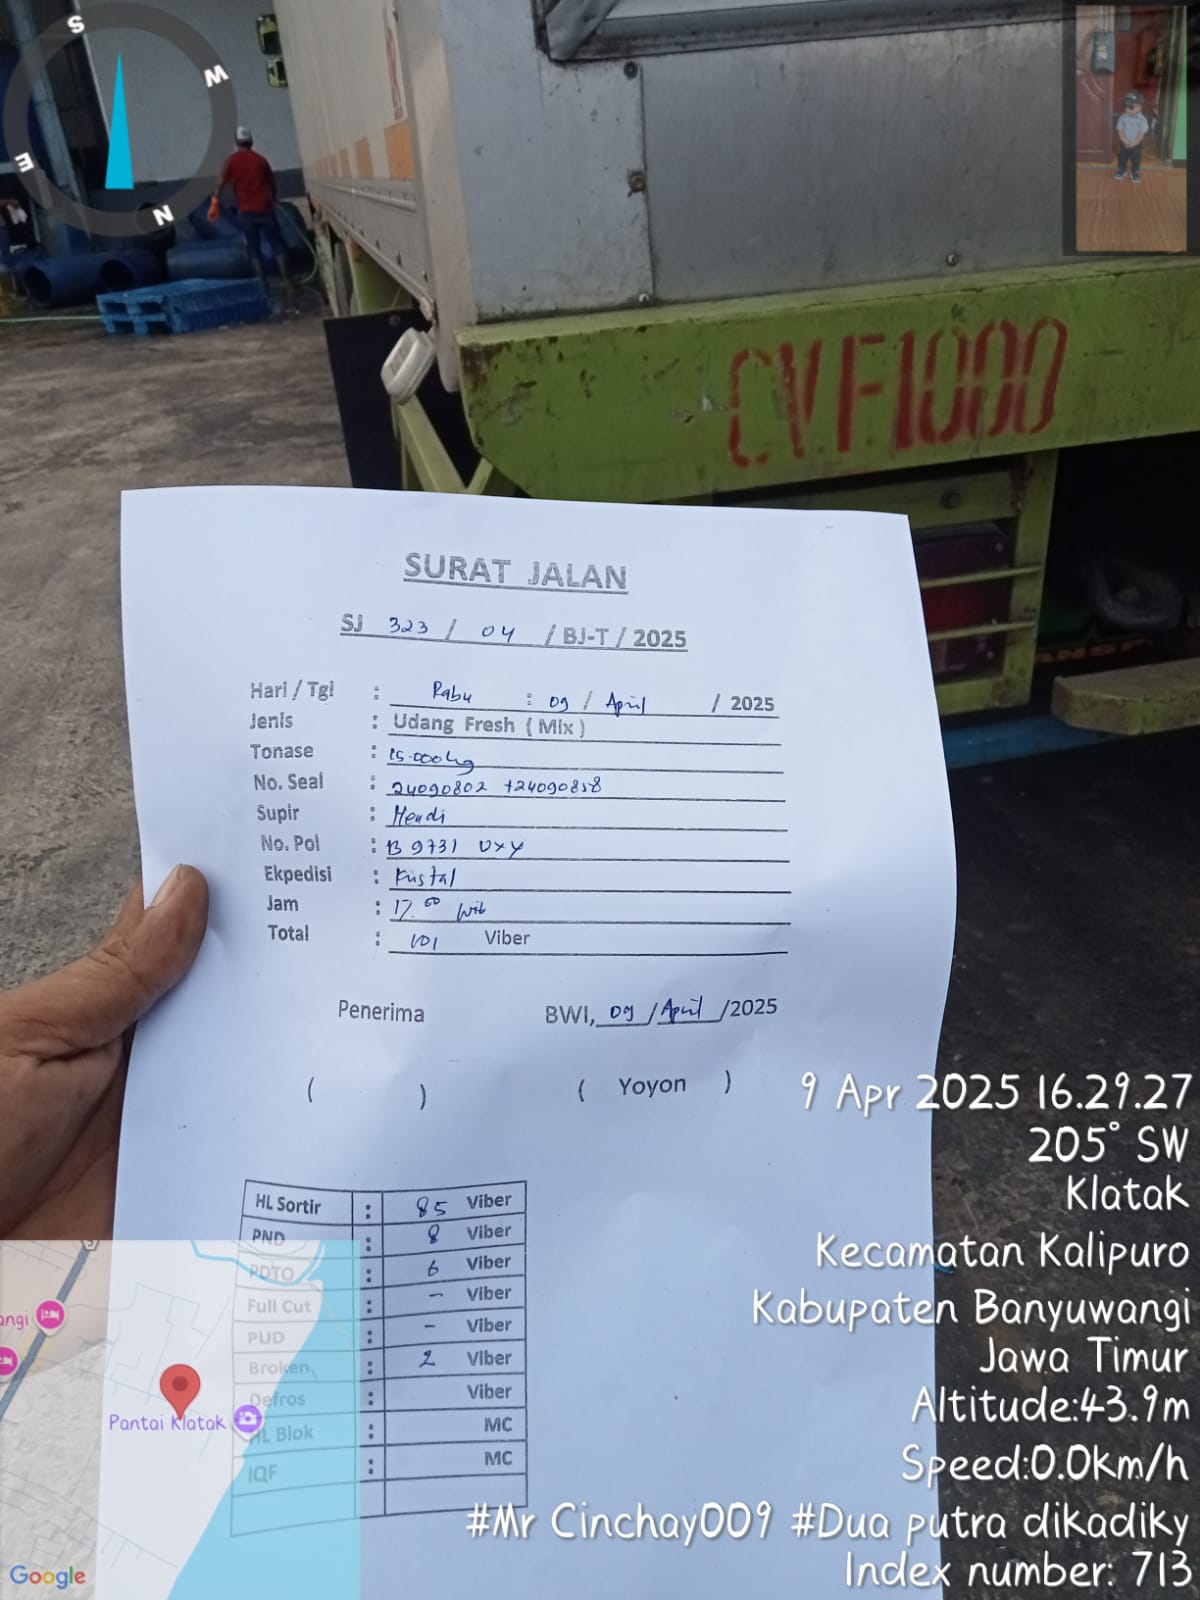 S
W
E
N
CVF1000
SURAT JALAN
SJ 323 / 04 / BJ-T / 2025
Hari / Tgl : Rabu : 09 / April / 2025
Jenis : Udang Fresh ( Mix )
Tonase : 15.000 kg
No. Seal : 24090802 +24090858
Supir : Hendi
No. Pol : B 9731 UXY
Ekpedisi : Kristal
Jam : 17.00 Wib
Total : 101 Viber
Penerima BWI, 09 / April / 2025
( ) ( Yoyon )
HL Sortir : 85 Viber
PND : 8 Viber
PDTO : 6 Viber
Full Cut : - Viber
PUD : - Viber
Broken : 2 Viber
Defros : Viber
HL Blok : MC
IQF : MC
angi
Pantai Klatak
Google
9 Apr 2025 16.29.27
205° SW
Klatak
Kecamatan Kalipuro
Kabupaten Banyuwangi
Jawa Timur
Altitude:43.9m
Speed:0.0km/h
#Mr Cinchay009 #Dua putra dikadiky
Index number: 713